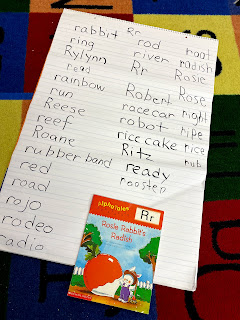 rabbit
ring
Rylynn
read
rainbow
run
Reese
reef
Roane
rubber band
red
road
rojo
rodeo
adio
Rr
rod
river
Rr
Robert
racecar
robot
rice cake
Ritz
ready
rooster
root
radish
Rosie
Rose
right
ripe
rice
rub
alphatales
Rr
Rosie Rabbit's
Radish